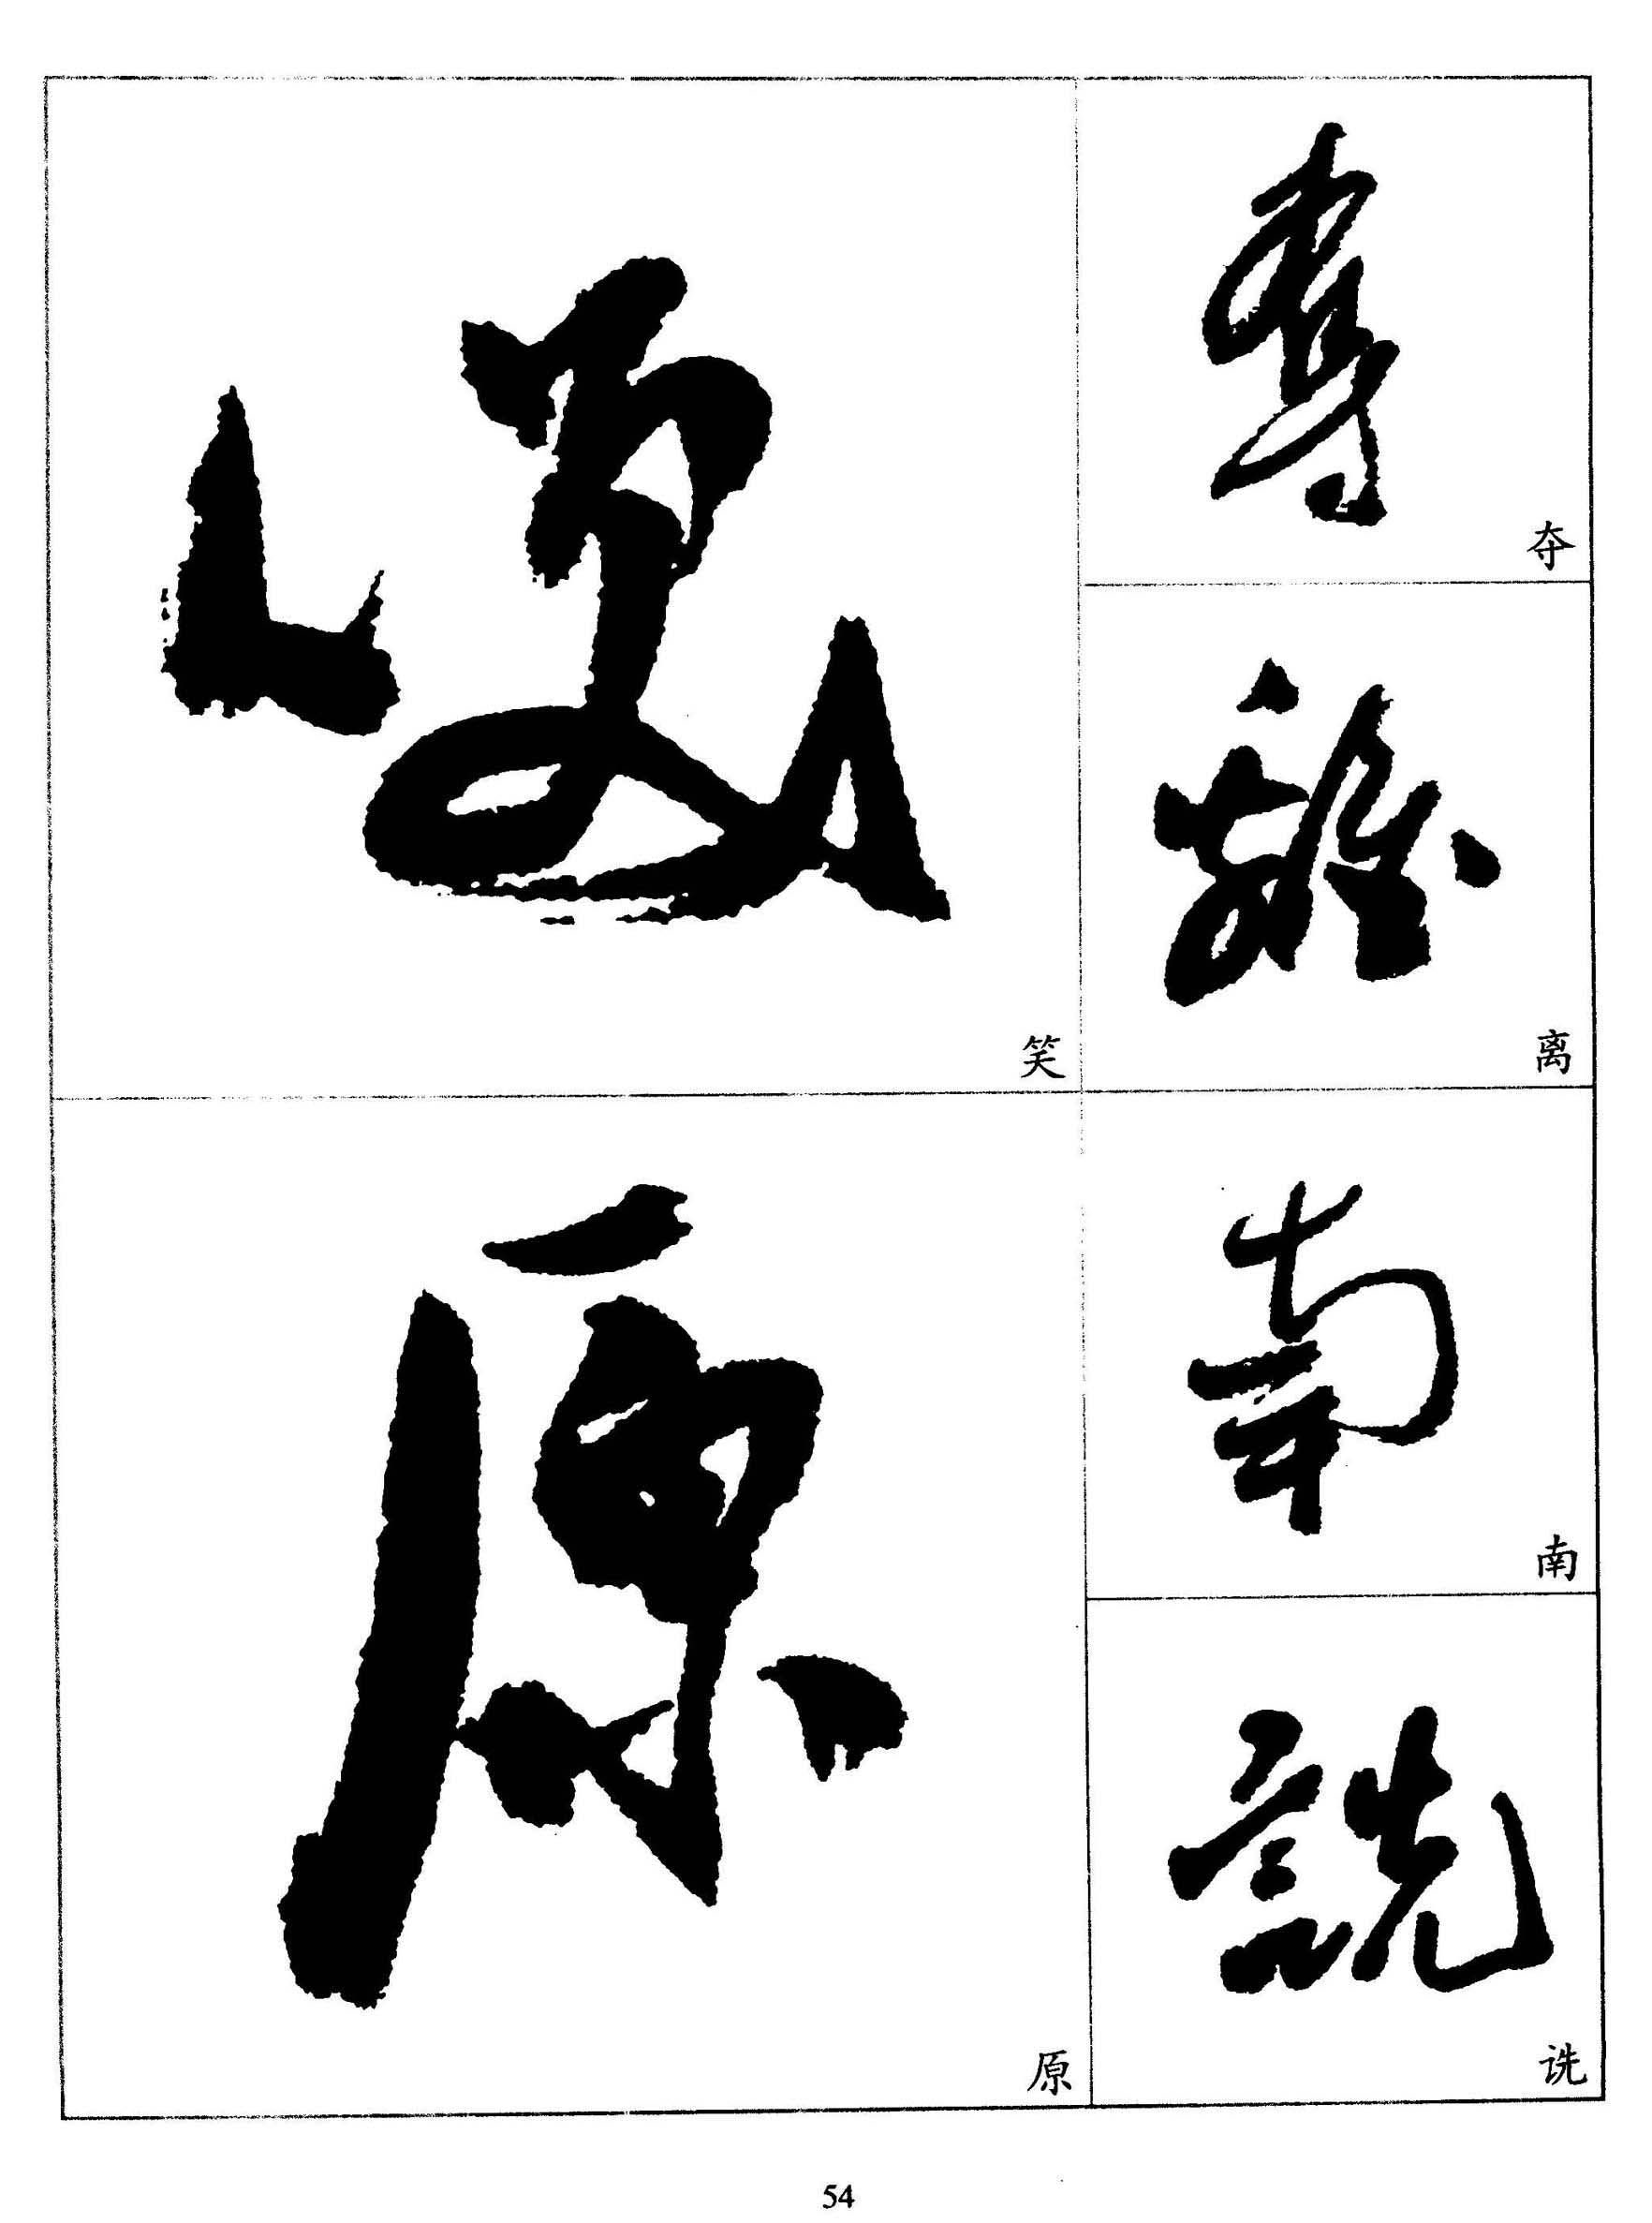 笑
夺
离
原
南
诜
54